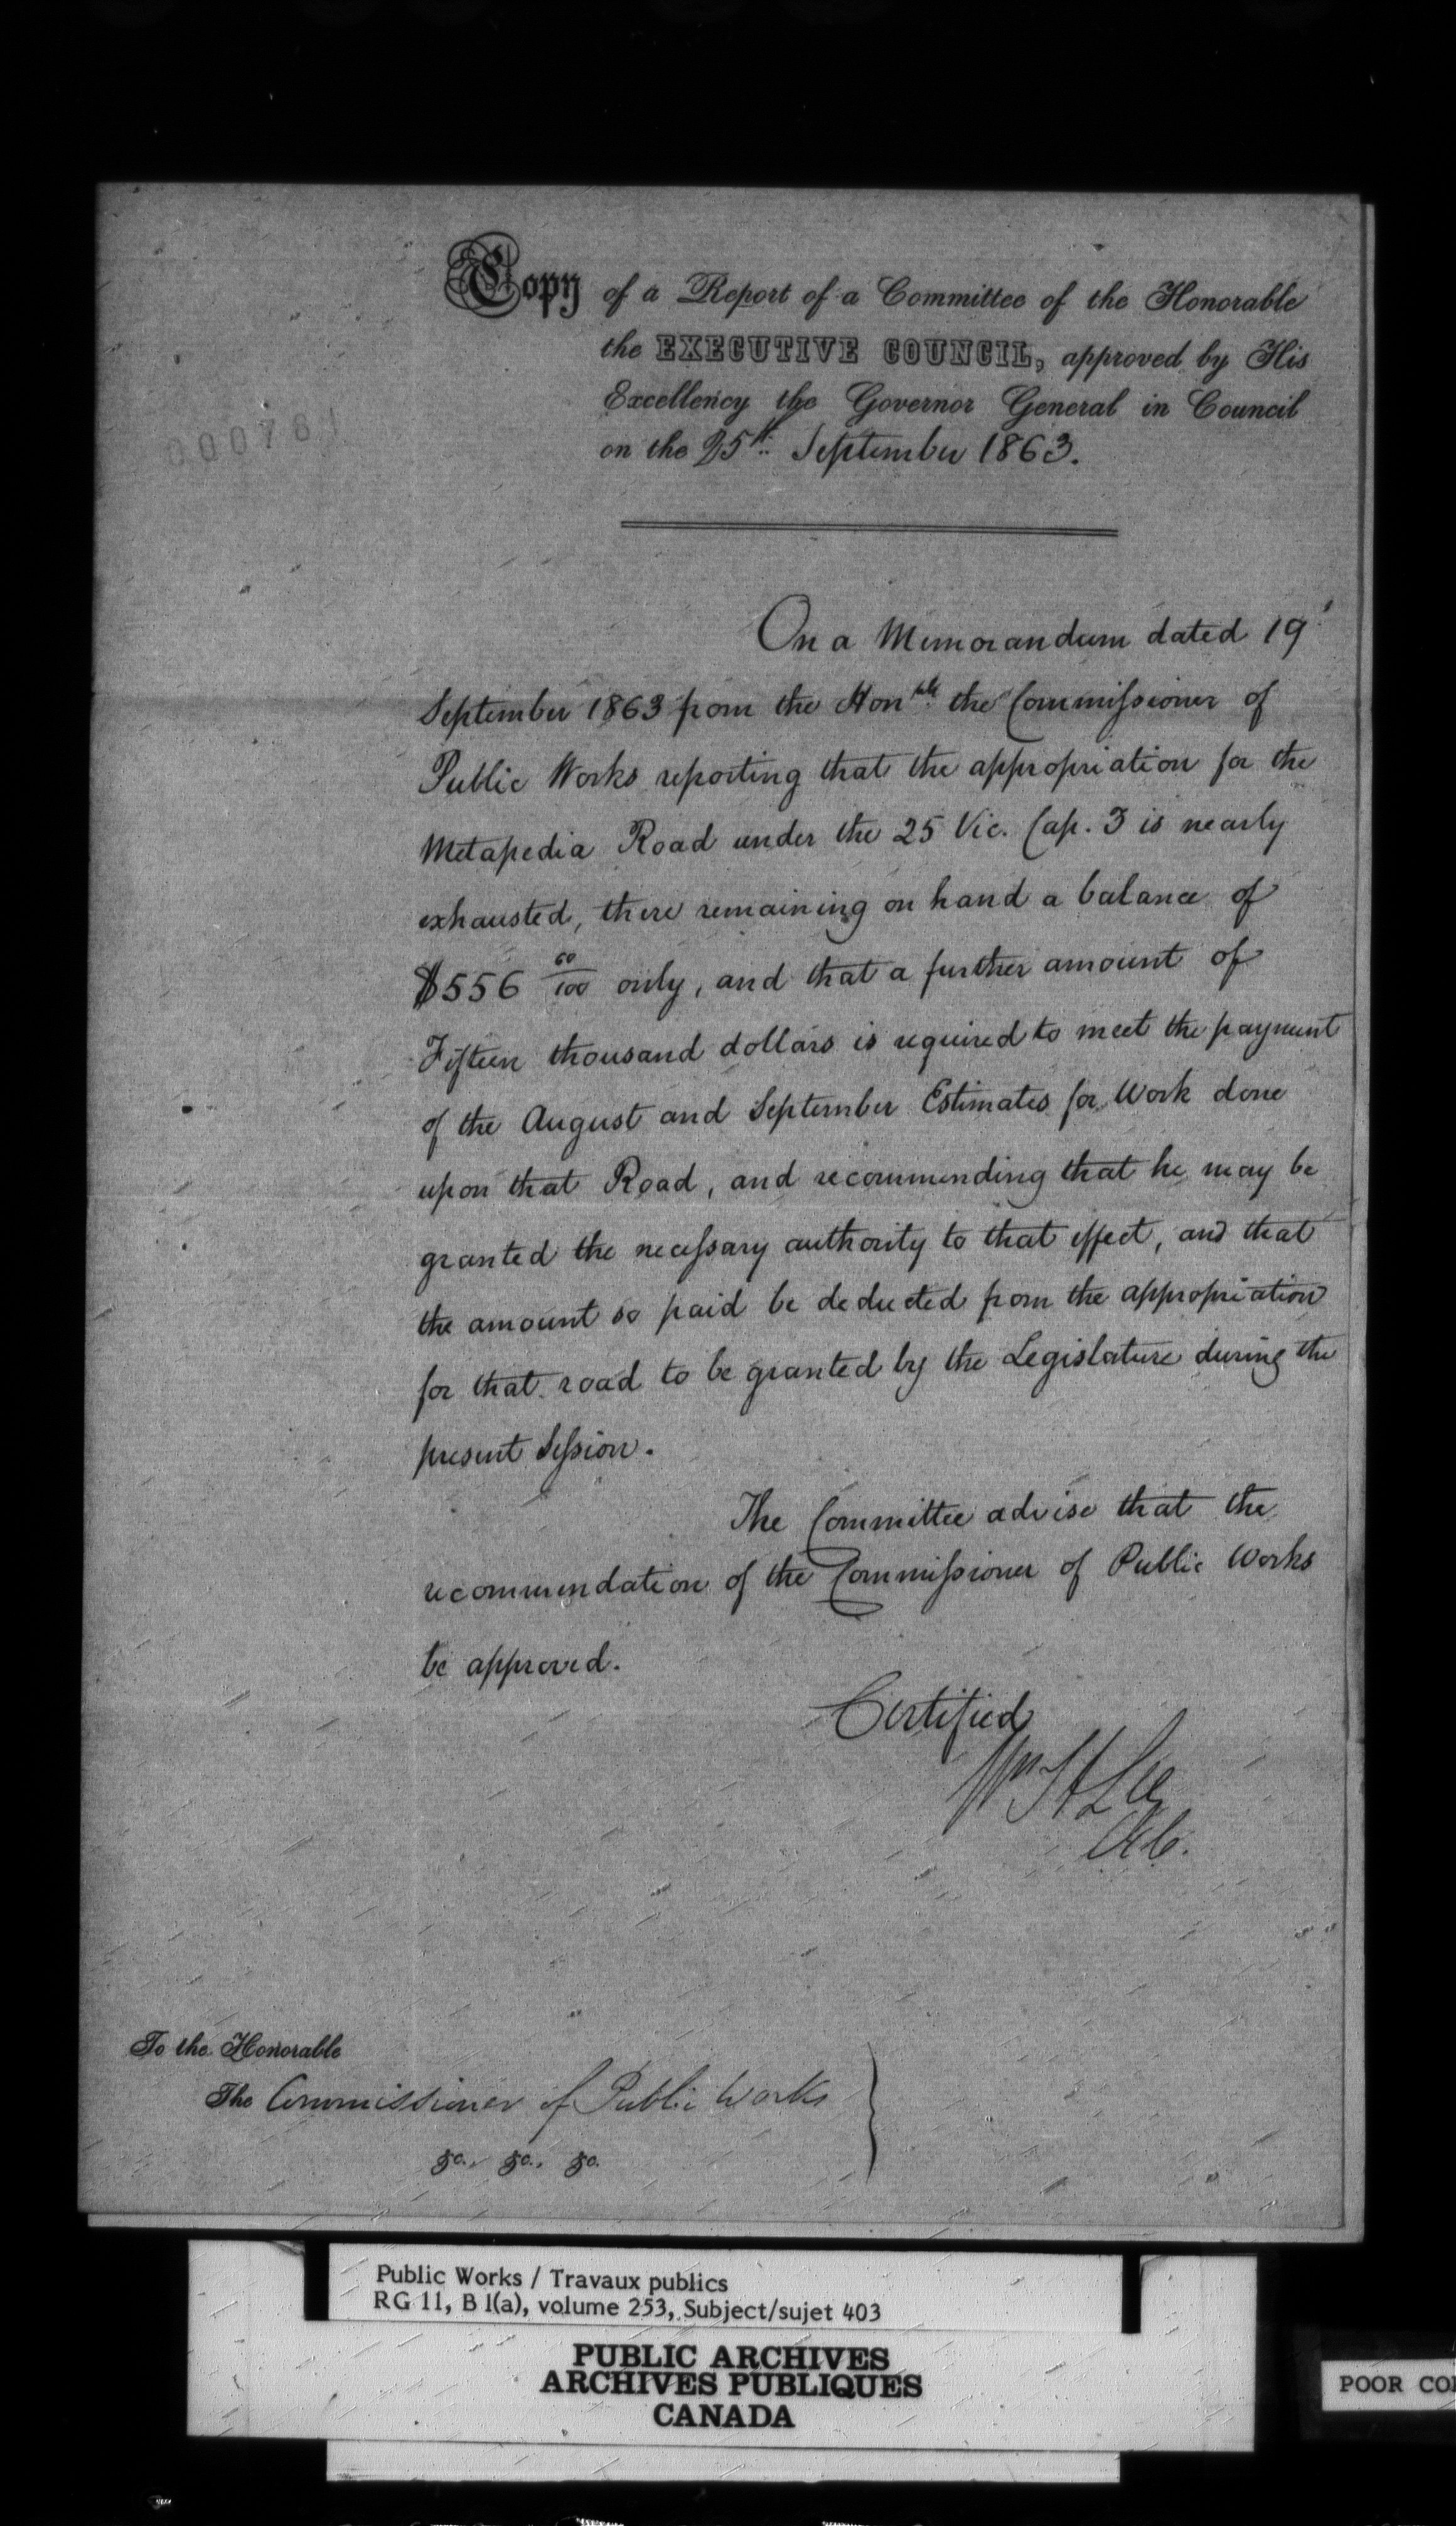 Copy of a Report of a Committee of the Honorable
the EXECUTIVE COUNCIL, approved by His
Excellency the Governor General in Council
on the 25th September 1863.
00076
On a Memorandum dated 19
September 1863 from the Honble the Commissioner of
Public Works reporting that the appropriation for the
Metapedia Road under the 25 Vic. Cap. 3 is nearly
exhausted, there remaining on hand a balance of
$556 60/100 only, and that a further amount of
Fifteen thousand dollars is required to meet the payment
of the August and September Estimates for Work done
upon that Road, and recommending that he may be
granted the necessary authority to that effect, and that
the amount so paid be deducted from the appropriation
for that road to be granted by the Legislature during the
present Session.
The Committee advise that the
recommendation of the Commissioner of Public Works
be approved.
Certified
Wm H Lee
C.E.C.
To the Honorable
The Commissioner of Public Works
&c., &c., &c.
Public Works / Travaux publics
RG 11, B 1(a), volume 253, Subject/sujet 403
PUBLIC ARCHIVES
ARCHIVES PUBLIQUES
CANADA
POOR